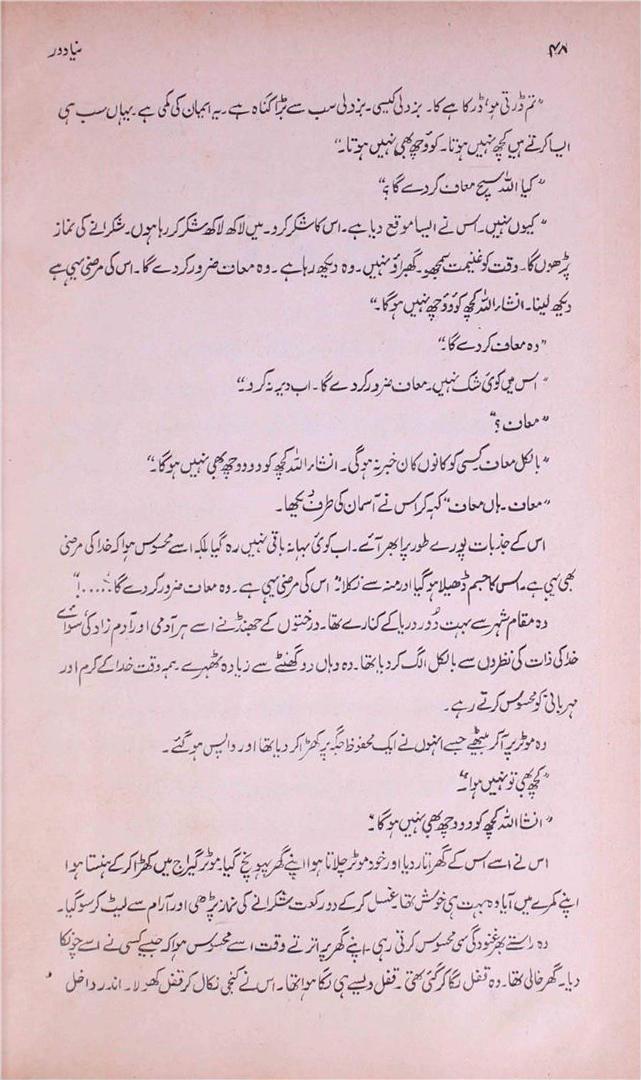 ۴۸
نیا دور
"تم ڈرتی ہو، ڈر کاہے کا۔ بزدلی کیسی۔ بزدلی سب سے بڑا گناہ ہے۔ یہ ایمان کی کمی ہے۔ یہاں سب ہی
ایسا کرتے ہیں کچھ نہیں ہوتا۔ کوؤچھ بھی نہیں ہوتا۔"
"کیا اللہ سچ معاف کر دے گا؟"
"کیوں نہیں۔ اس نے ایسا موقع دیا ہے۔ اس کا شکر کرو۔ میں لاکھ لاکھ شکر کر رہا ہوں۔ شکرانے کی نماز
پڑھوں گا۔ وقت کو غنیمت سمجھو۔ گھبراؤ نہیں۔ وہ دیکھ رہا ہے۔ وہ معاف ضرور کر دے گا۔ اس کی مرضی یہی ہے
دیکھ لینا۔ انشاء اللہ کچھ کوؤوچھ نہیں ہو گا۔"
"وہ معاف کر دے گا۔"
"اس میں کوئی شک نہیں۔ معاف ضرور کر دے گا۔ اب دیر نہ کرو۔"
"معاف؟"
"بالکل معاف کسی کو کانوں کان خبر نہ ہو گی۔ انشاء اللہ کچھ کو دودوچھ بھی نہیں ہو گا۔"
"معاف۔ ہاں معاف" کہہ کر اس نے آسمان کی طرف دیکھا۔
اس کے جذبات پورے طور پر ابھر آئے۔ اب کوئی بہانہ باقی نہیں رہ گیا بلکہ اسے محسوس ہوا کہ خدا کی مرضی
بھی یہی ہے۔ اس کا جسم ڈھیلا ہو گیا اور منہ سے نکلا: اس کی مرضی یہی ہے۔ وہ معاف ضرور کر دے گا.....!"
وہ مقام شہر سے بہت دور دریا کے کنارے تھا۔ درختوں کے جھنڈ نے اسے ہر آدمی اور آدم زاد کی سوائے
خدا کی ذات کی نظروں سے بالکل الگ کر دیا تھا۔ وہ وہاں دو گھنٹے سے زیادہ ٹھہرے۔ ہمہ وقت خدا کے کرم اور
مہربانی کو محسوس کرتے رہے۔
وہ موٹر پر آ کر بیٹھے جسے انہوں نے ایک محفوظ جگہ پر کھڑا کر دیا تھا اور واپس ہو گئے۔
"کچھ بھی تو نہیں ہوا۔"
"انشا اللہ کچھ کو دودچھ بھی نہیں ہو گا۔"
اس نے اسے اس کے گھر اتار دیا اور خود موٹر چلاتا ہوا اپنے گھر پہونچ گیا۔ موٹر گیراج میں کھڑا کر کے ہنستا ہوا
اپنے کمرے میں آیا وہ بہت ہی خوش تھا۔ غسل کر کے دو رکعت شکرانے کی نماز پڑھی اور آرام سے لیٹ کر سو گیا۔
وہ راستے بھر غنودگی سی محسوس کرتی رہی۔ اپنے گھر پر اترتے وقت اسے محسوس ہوا کہ جیسے کسی نے اسے چونکا
دیا۔ گھر خالی تھا۔ وہ قفل لگا کر گئی تھی۔ قفل ویسے ہی لگا ہوا تھا۔ اس نے کنجی نکال کر قفل کھولا۔ اندر داخل